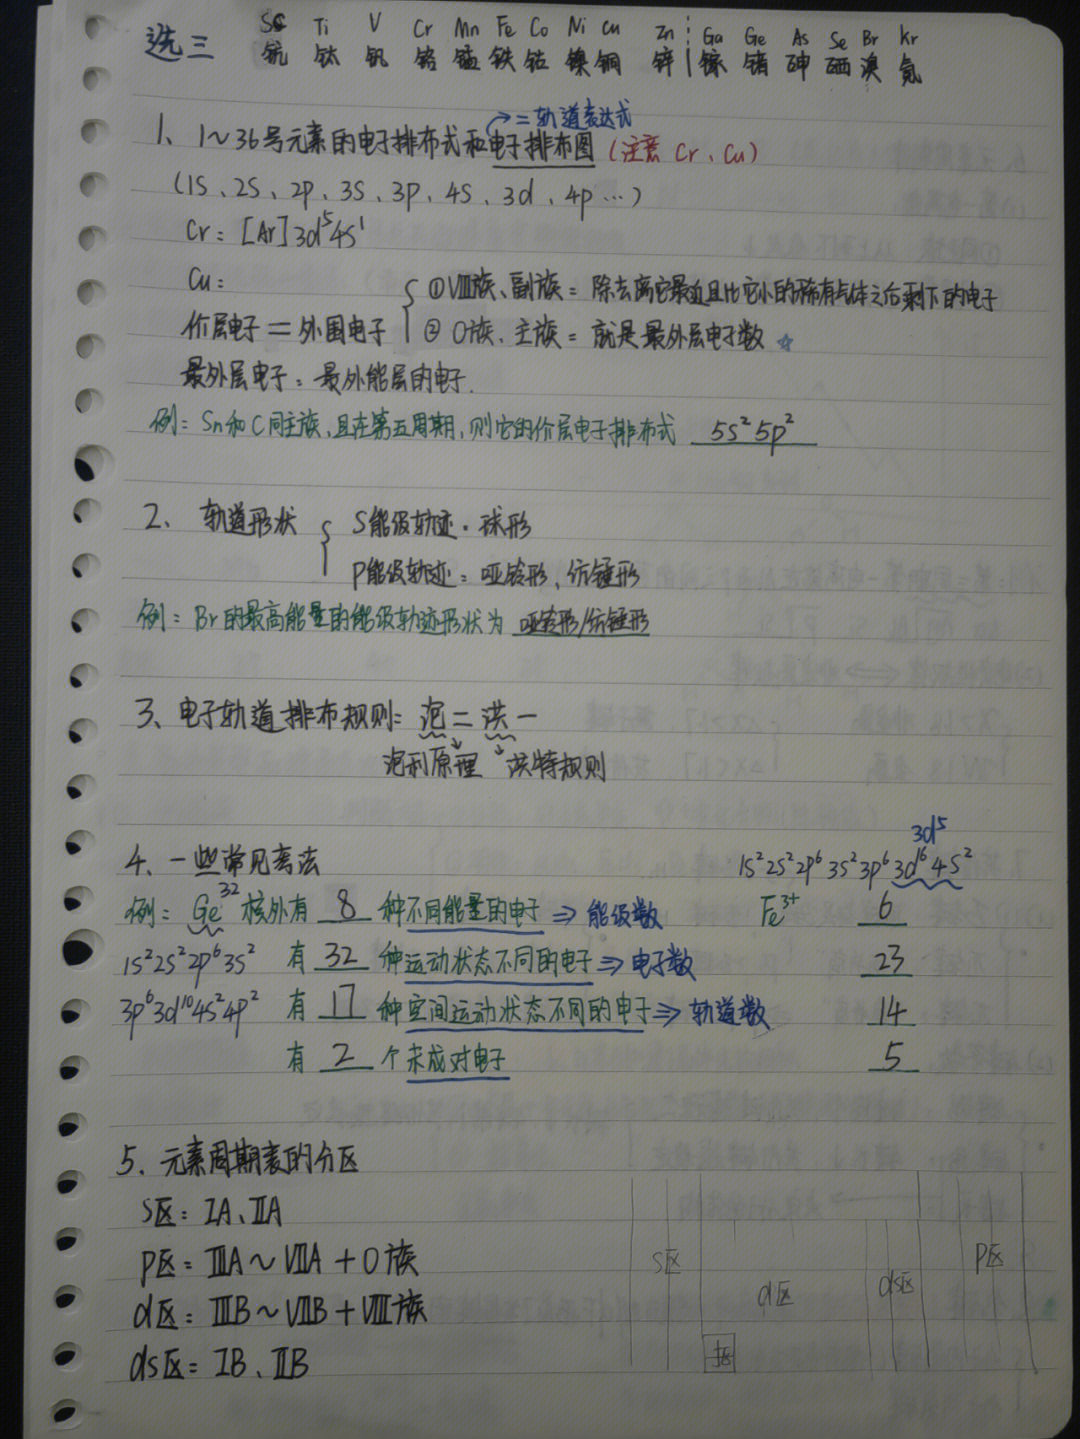 选三
Sc Ti V Cr Mn Fe Co Ni Cu Zn Ga Ge As Se Br Kr
钪 钛 钒 铬 锰 铁 钴 镍 铜 锌 镓 锗 砷 硒 溴 氪
= 轨道表达式
1、1~36号元素的电子排布式和电子排布图(注意 Cr、Cu)
(1S、2S、2p、3S、3p、4S、3d、4p…)
Cr: [Ar]3d⁵4S¹
Cu:
①Ⅷ族、副族 = 除去离它最近且比它小的稀有气体之后剩下的电子
价层电子 = 外围电子
② 0族、主族 = 就是最外层电子数 ☆
最外层电子: 最外能层的电子.
例: Sn和C同主族,且在第五周期,则它的价层电子排布式 5S²5p²
2、轨道形状
S能级轨迹·球形
P能级轨迹: 哑铃形、纺锤形
例: Br的最高能量的能级轨迹形状为 哑铃形/纺锤形
3、电子轨道排布规则: 泡二洪一
泡利原理 洪特规则
4、一些常见考法
3d⁵
1S²2S²2p⁶3S²3p⁶3d¹⁶4S²
例: Ge³² 核外有 8 种不同能量的电子 ⇒ 能级数 Fe³⁺ 6
1S²2S²2p⁶3S² 有 32 种运动状态不同的电子 ⇒ 电子数 23
3p⁶3d¹⁰4S²4p² 有 17 种空间运动状态不同的电子 ⇒ 轨道数 14
有 2 个未成对电子 5
5、元素周期表的分区
S区: ⅠA、ⅡA
P区: ⅢA~ⅦA + 0族
d区: ⅢB~ⅦB + Ⅷ族
ds区: ⅠB、ⅡB
S区 d区 ds区 P区
f区